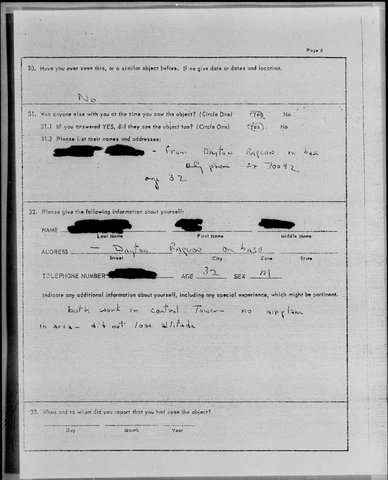 Page 6
30. Have you ever seen this, or a similar object before. If so give date or dates and location.
No
31. Was anyone else with you at the time you saw the object? (Circle One) Yes No
31.1 If you answered YES, did they see the object too? (Circle One) Yes No
31.2 Please list their names and addresses:
- From Dayton Rapcon on base
phone 70092
age 32
32. Please give the following information about yourself:
NAME
Last Name First Name Middle Name
ADDRESS - Dayton Rapcon on base
Street City Zone State
TELEPHONE NUMBER AGE 32 SEX M
Indicate any additional information about yourself, including any special experience, which might be pertinent.
both work in control Tower - no airplane
in area - did not lose altitude
33. When and to whom did you report that you had seen the object?
Day Month Year